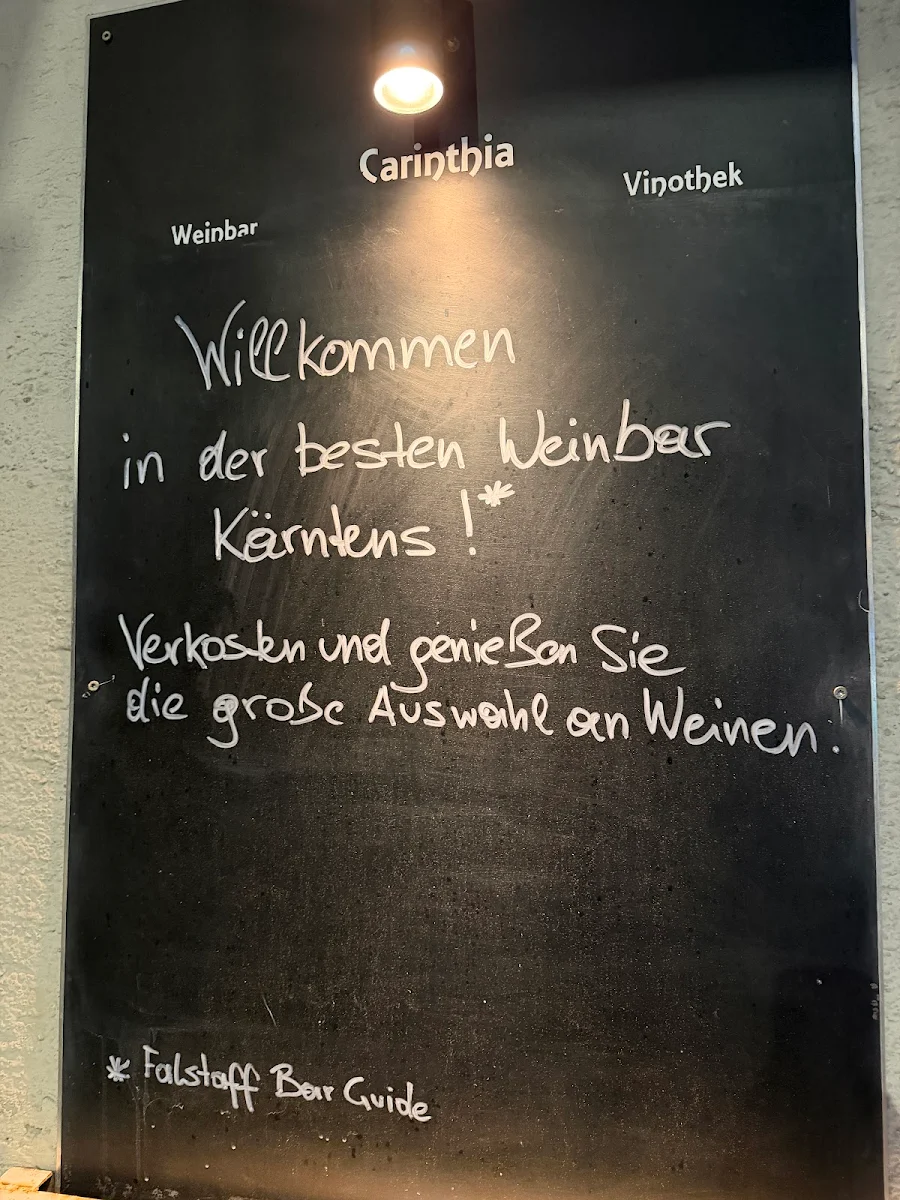 Carinthia
Vinothek
Weinbar
Willkommen
in der besten Weinbar
Kärntens!*
Verkosten und genießen Sie
die große Auswahl an Weinen.
* Falstaff Bar Guide